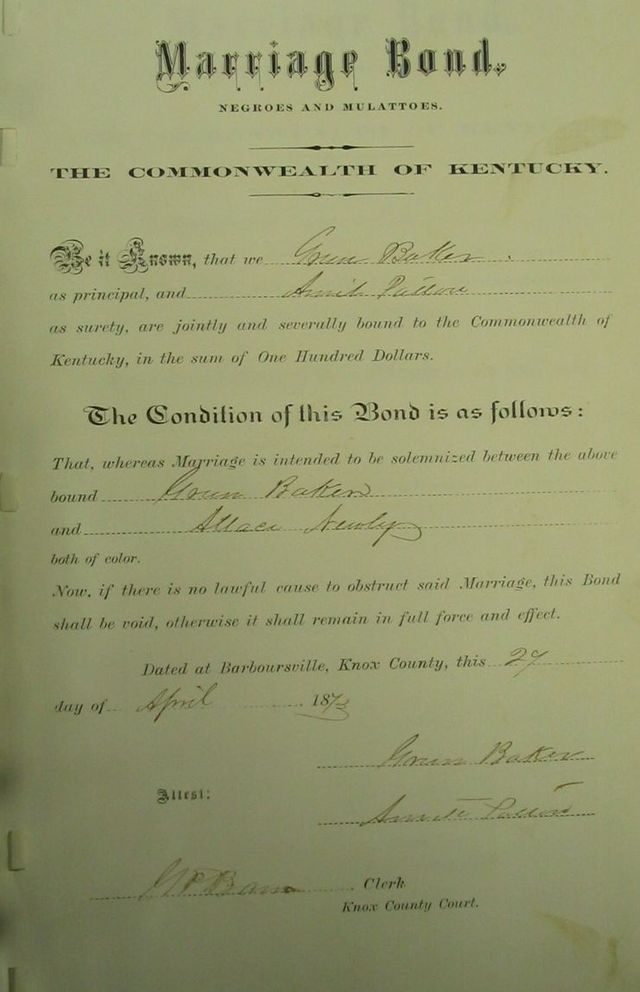 Marriage Bond.
NEGROES AND MULATTOES.
THE COMMONWEALTH OF KENTUCKY.
Be it Known, that we Green Baker
as principal, and
as surety, are jointly and severally bound to the Commonwealth of
Kentucky, in the sum of One Hundred Dollars.
The Condition of this Bond is as follows:
That, whereas Marriage is intended to be solemnized between the above
bound Green Baker
and Newly
both of color.
Now, if there is no lawful cause to obstruct said Marriage, this Bond
shall be void, otherwise it shall remain in full force and effect.
Dated at Barboursville, Knox County, this 27
day of April 187
Green Baker
Attest:
Clerk
Knox County Court.